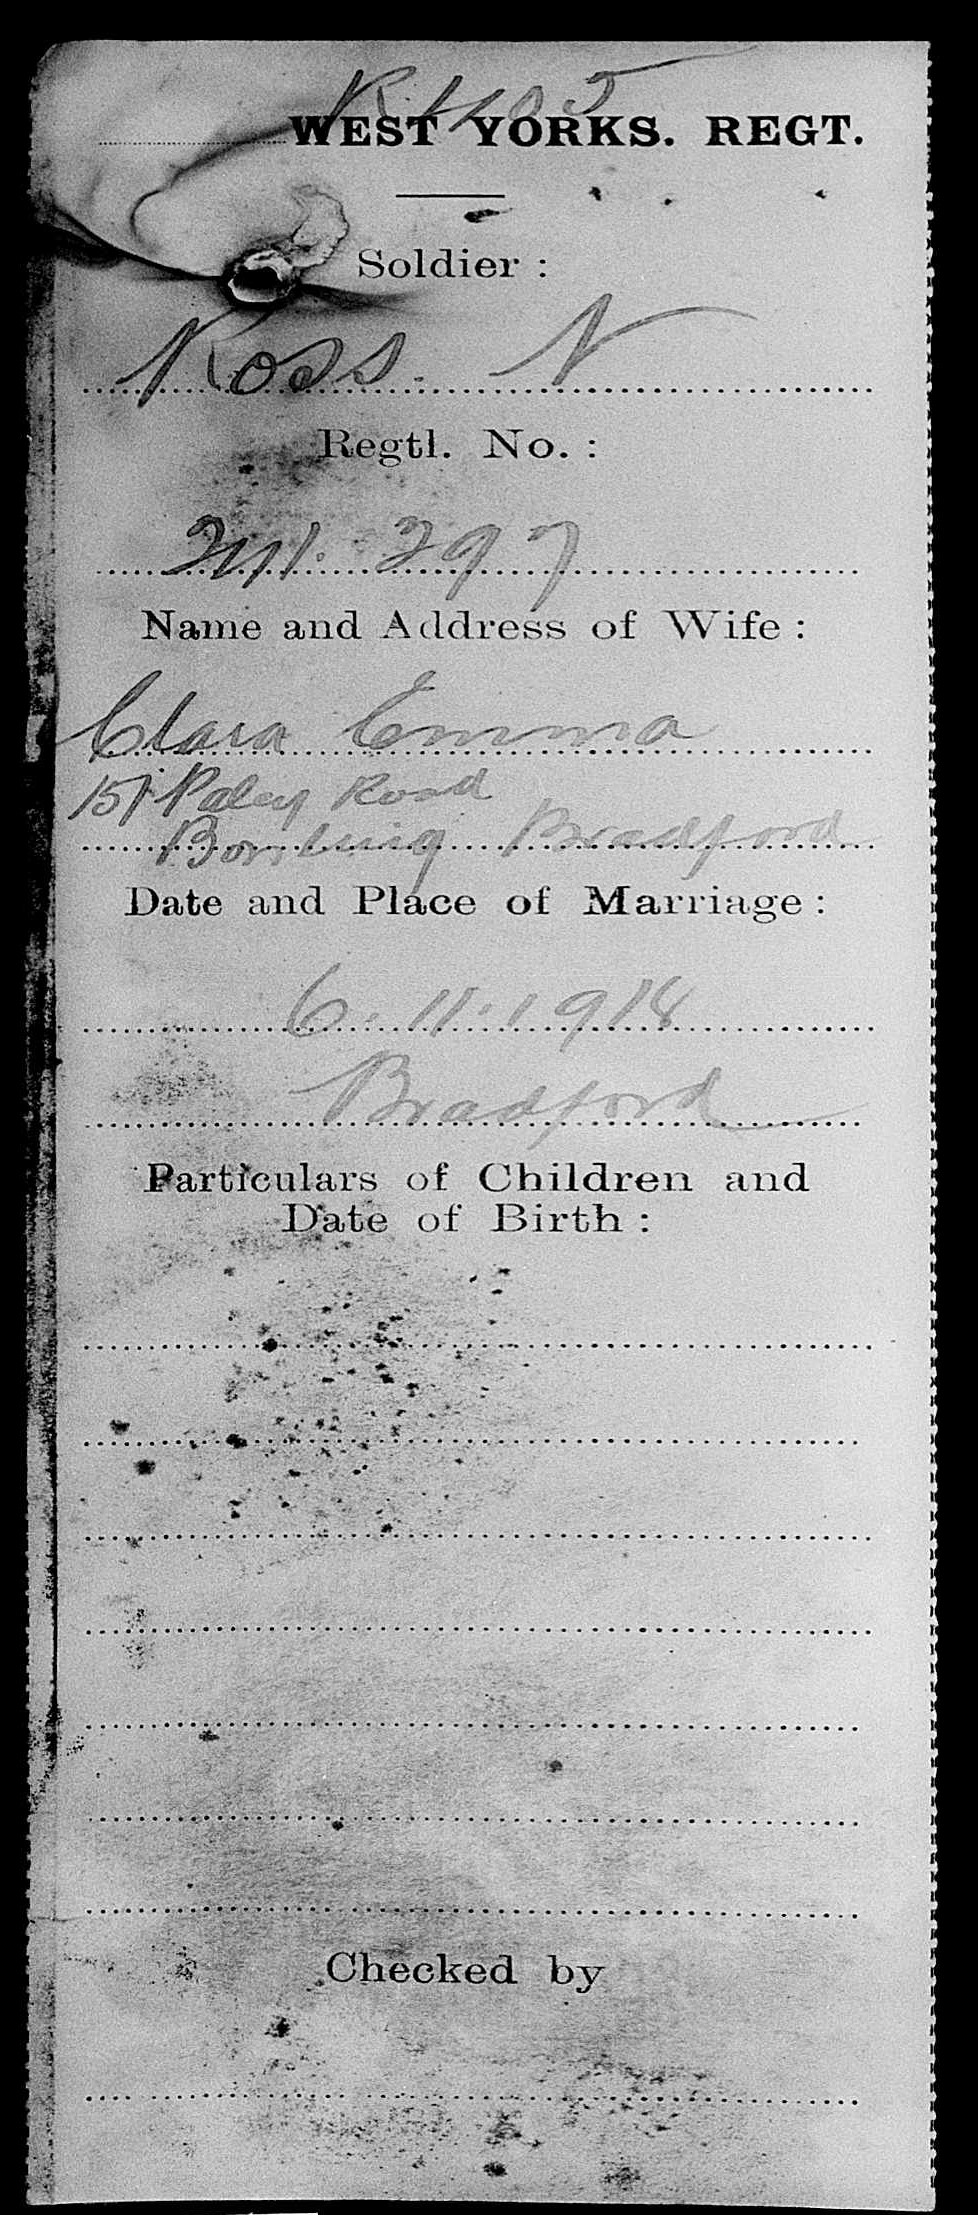 R/1105
WEST YORKS. REGT.
Soldier :
Ross. N
Regtl. No. :
397
Name and Address of Wife :
Clara Emma
151 Paley Road
Bowling Bradford
Date and Place of Marriage :
6.11.1918
Bradford
Particulars of Children and
Date of Birth :
Checked by